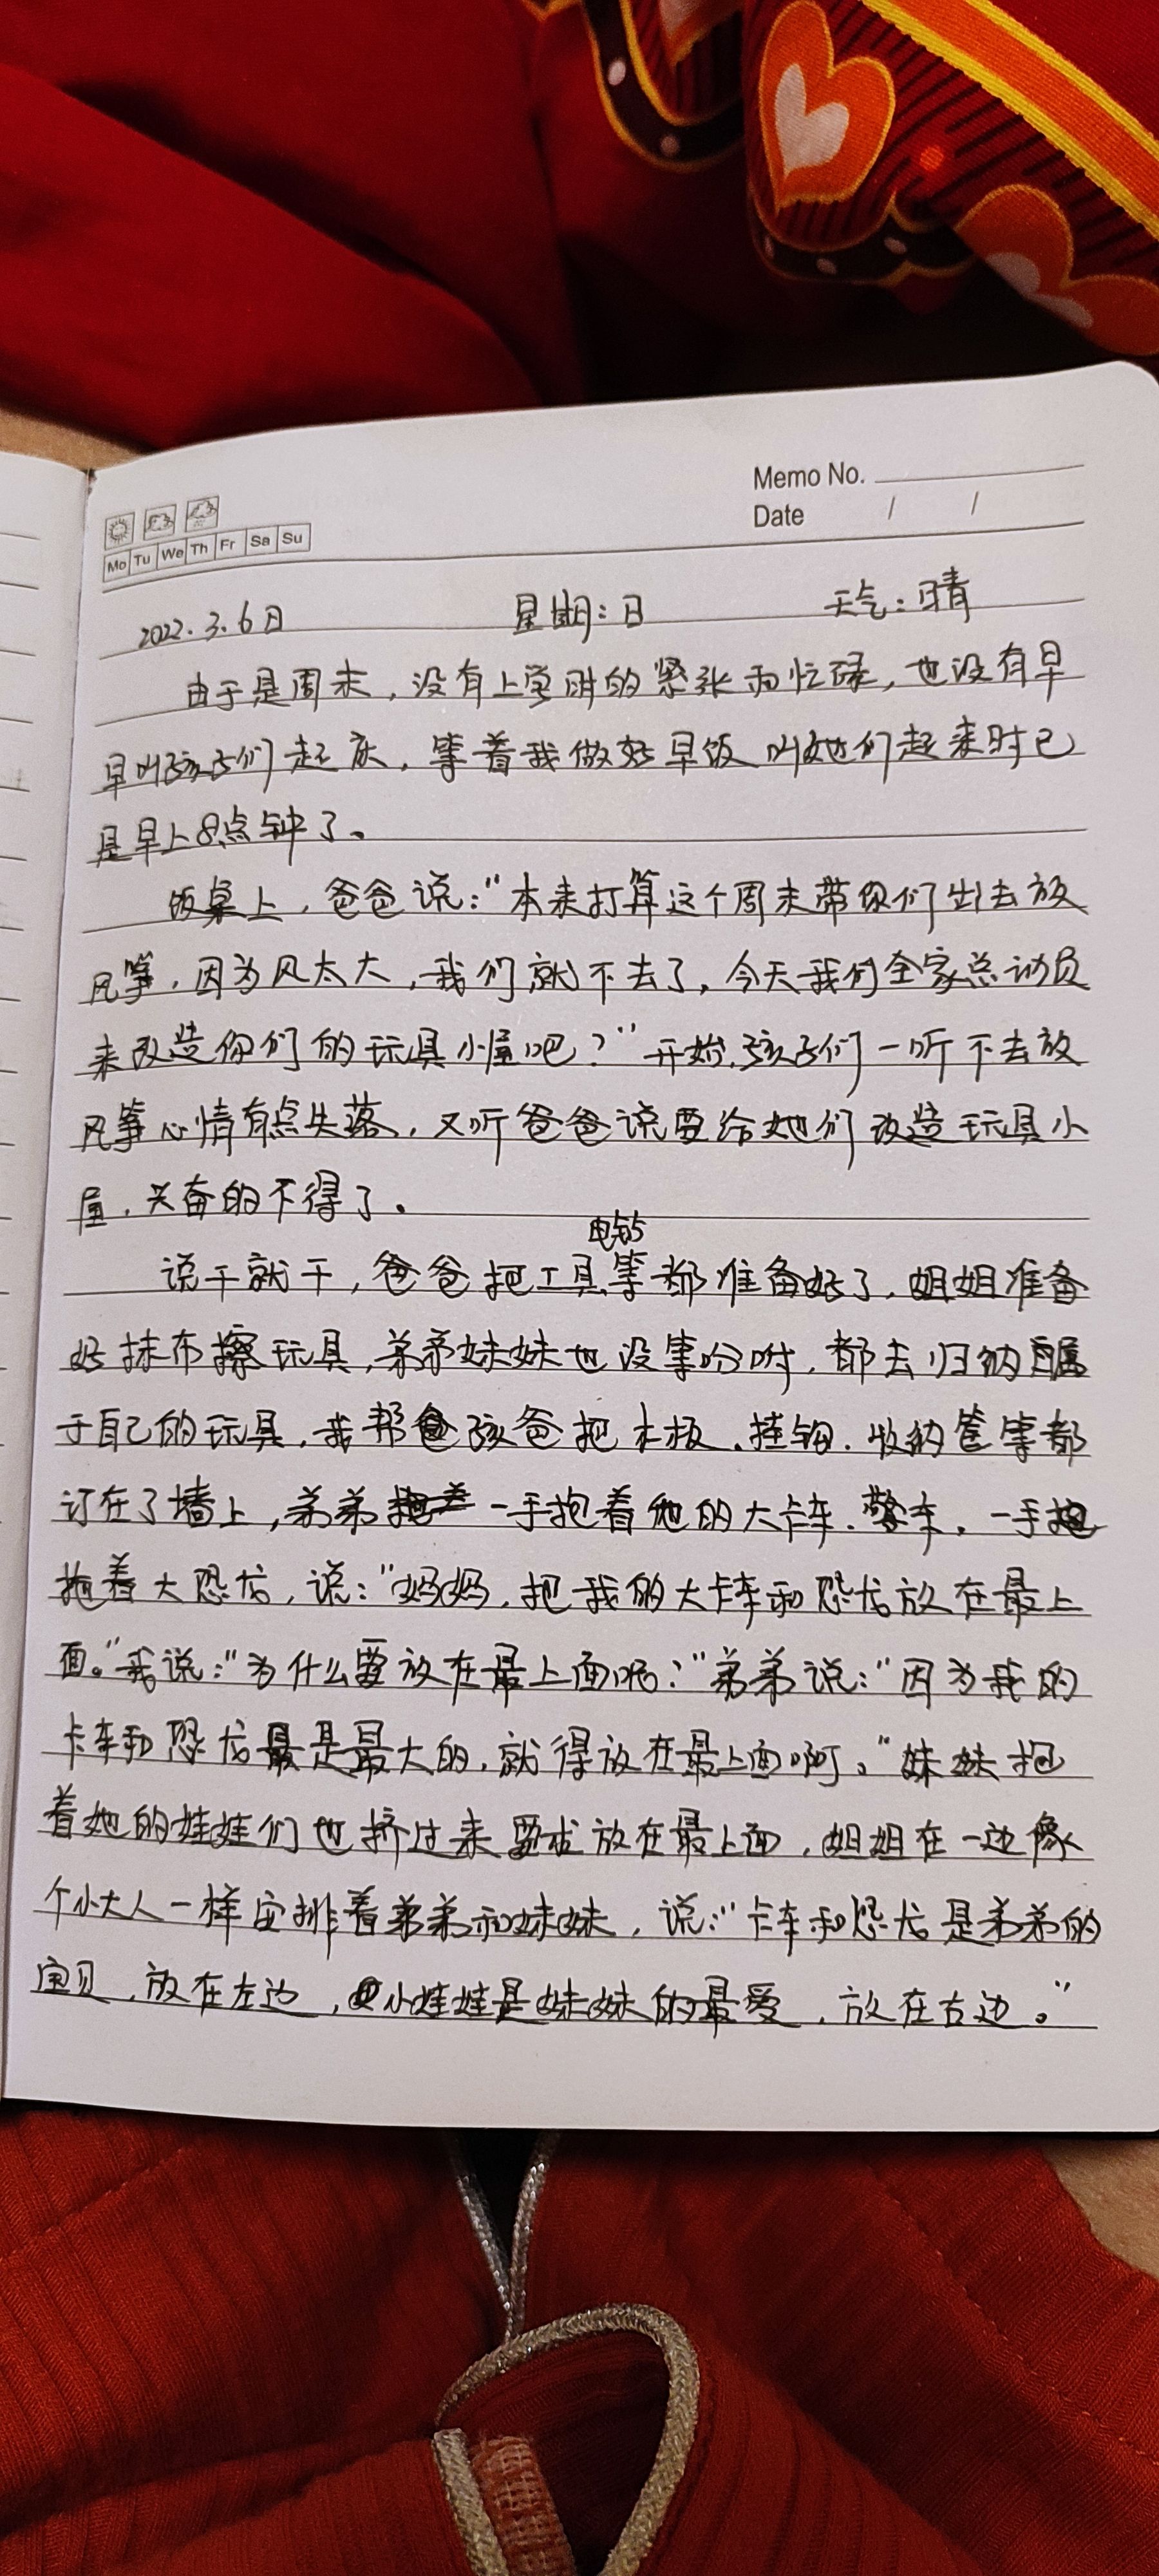 Memo No.
Date / /
Mo Tu We Th Fr Sa Su
2022.3.6日 星期:日 天气:晴
由于是周末,没有上学时的紧张和忙碌,也没有早
早叫孩子们起床,等着我做好早饭叫她们起来时已
是早上8点钟了。
饭桌上,爸爸说:"本来打算这个周末带你们出去放
风筝,因为风太大,我们就不去了,今天我们全家总动员
来改造你们的玩具小屋吧?"开始,孩子们一听不去放
风筝心情有点失落,又听爸爸说要给她们改造玩具小
屋,兴奋的不得了。
电钻
说干就干,爸爸把工具等都准备好了,姐姐准备
好抹布擦玩具,弟弟妹妹也没等吩咐,都去归纳属
于自己的玩具,我帮孩爸把木板、挂钩、收纳筐等都
订在了墙上,弟弟一手抱着他的大卡车、警车,一手
抱着大恐龙,说:"妈妈,把我的大卡车和恐龙放在最上
面。"我说:"为什么要放在最上面呢?"弟弟说:"因为我的
卡车和恐龙是最大的,就得放在最上面啊。"妹妹抱
着她的娃娃们也挤过来要求放在最上面,姐姐在一边像
个小大人一样安排着弟弟和妹妹,说:"卡车和恐龙是弟弟的
宝贝,放在左边,小娃娃是妹妹的最爱,放在右边。"